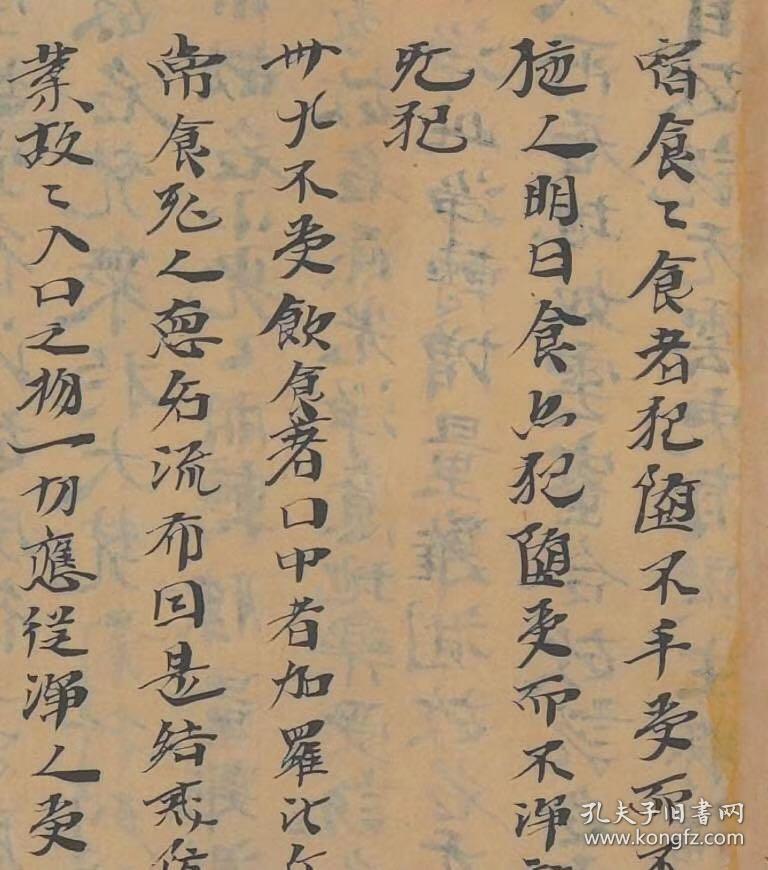 宿食〻食者犯墮不手受而不
施人明日食亦犯墮受而不淨
无犯
卅九不受飲食著口中者加羅比丘
常食死人惡名流布因是結戒
業故〻入口之物一切應從淨人受
孔夫子旧书网
www.kongfz.com